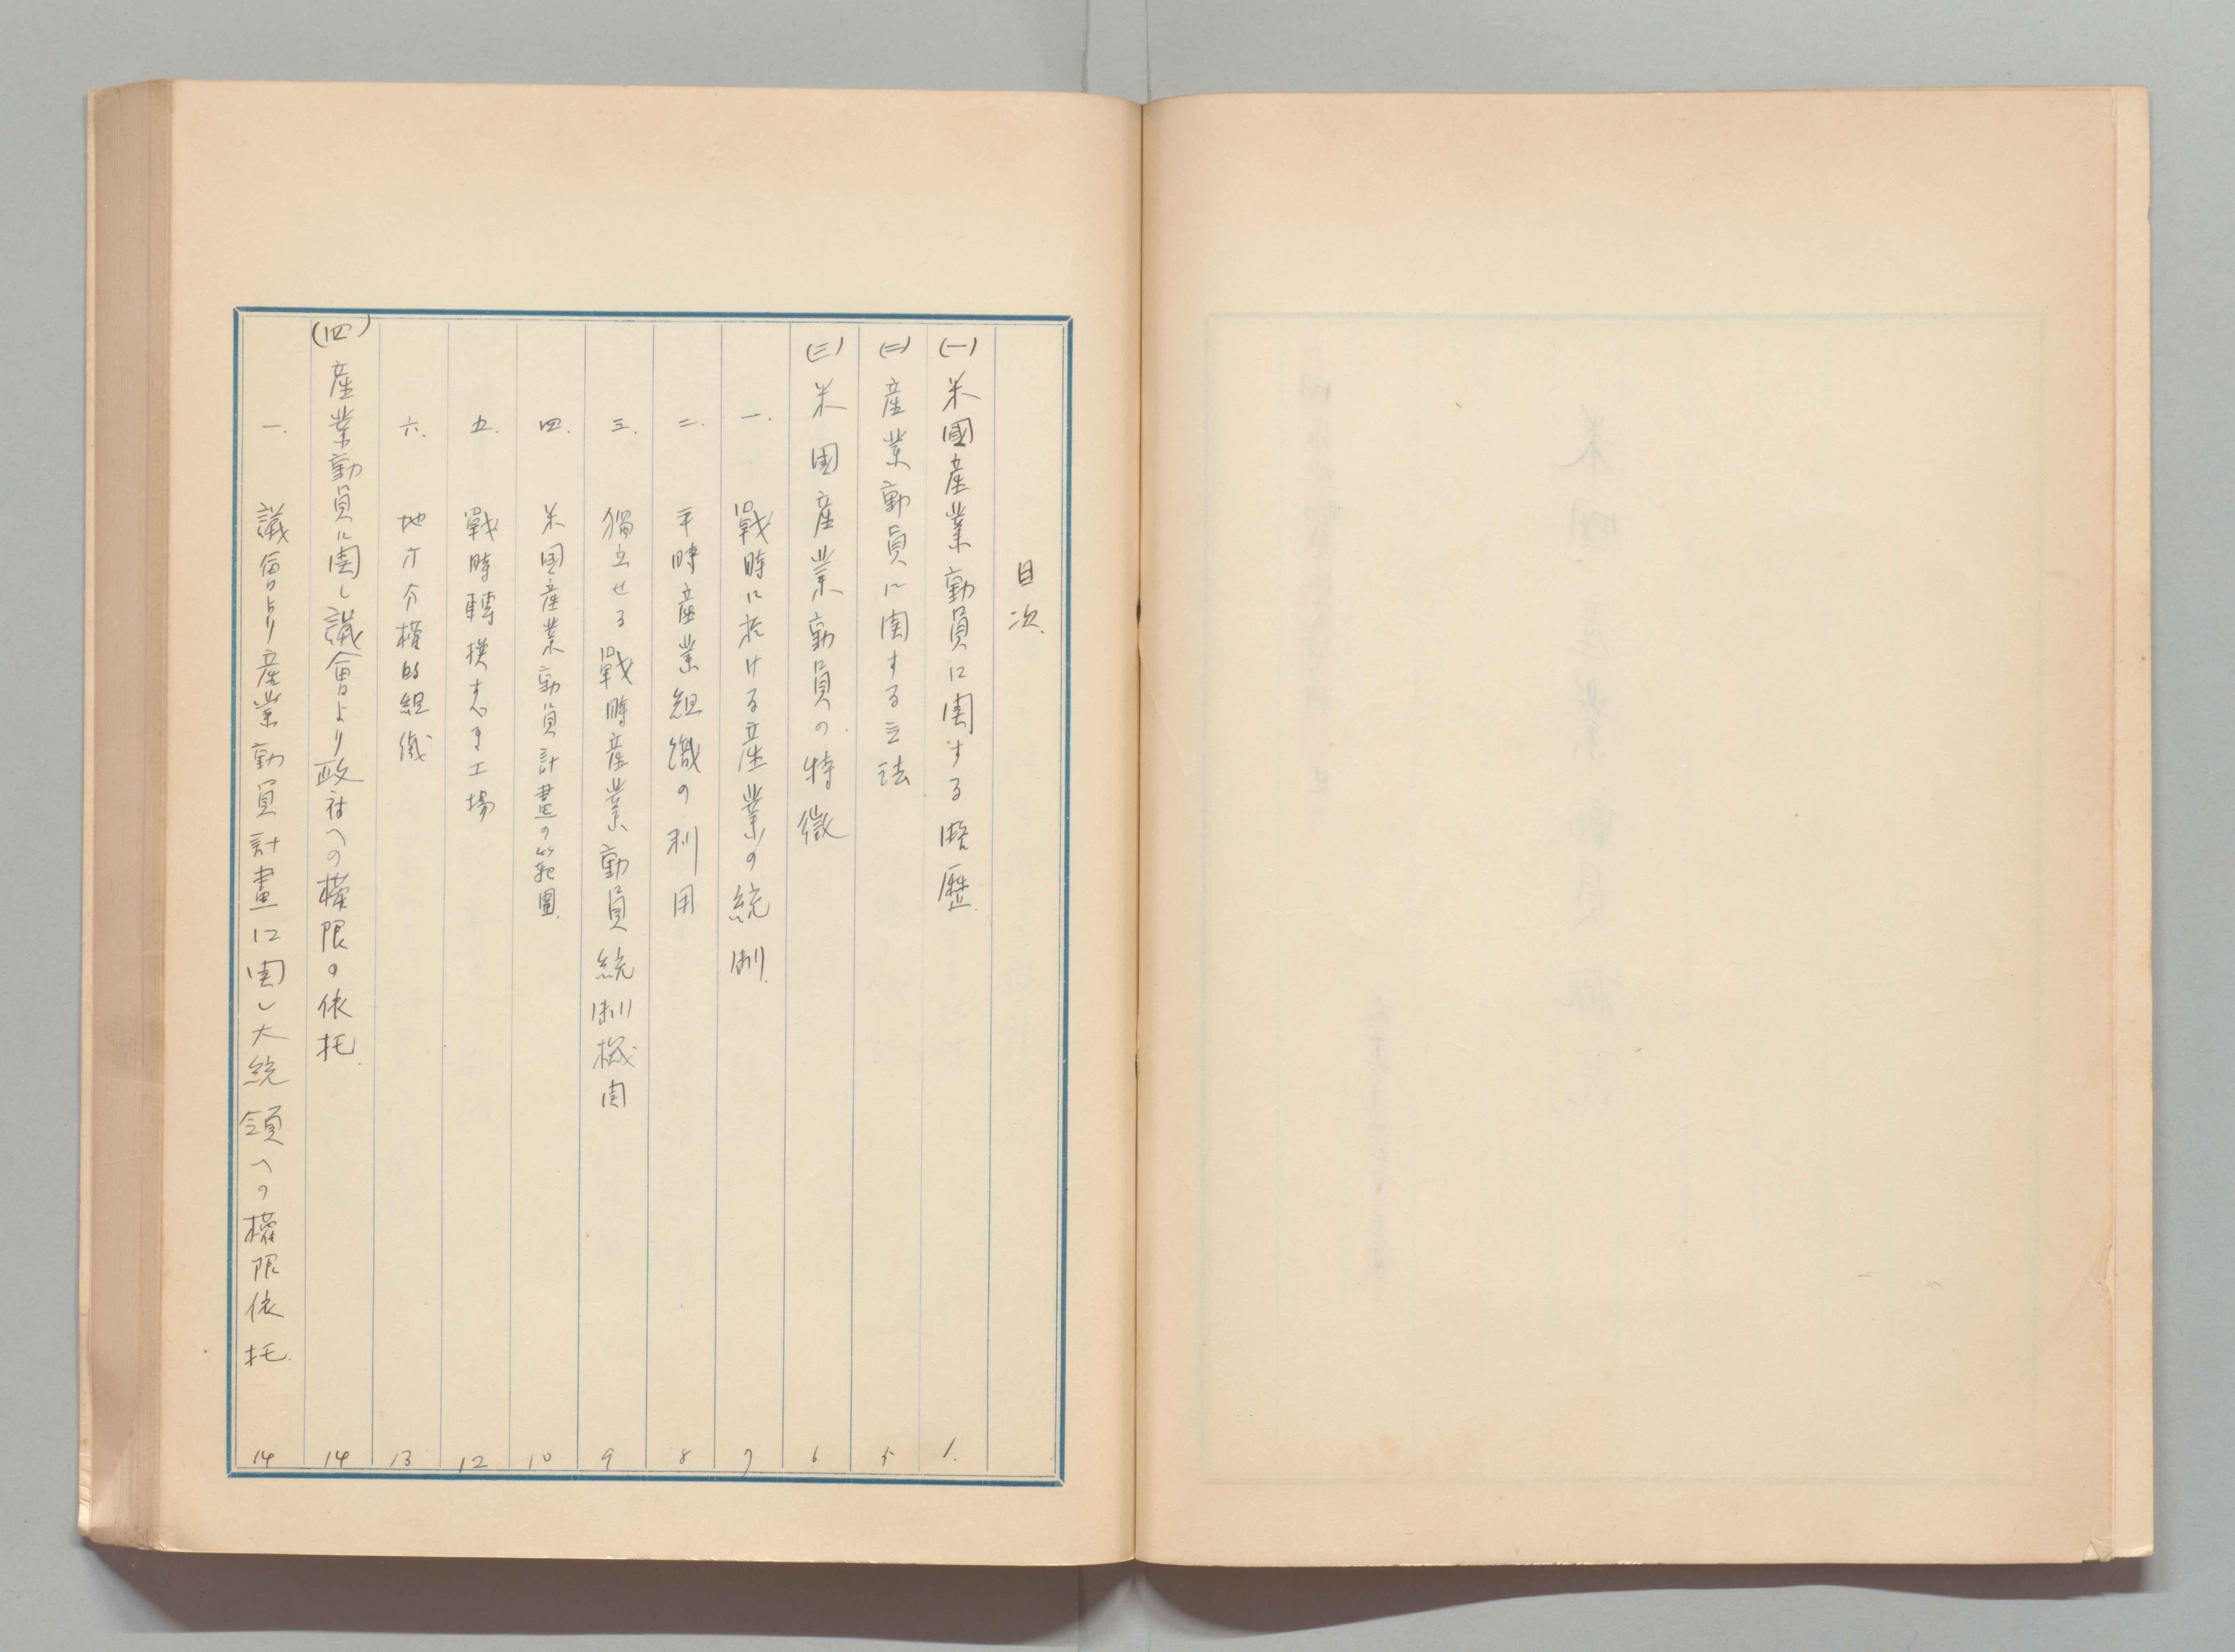 目次
(一) 米國産業動員に関する略歴 1.
(二) 産業動員に関する立法 5
(三) 米国産業動員の特徴 6
一. 戰時に於ける産業の統制. 7
二. 平時産業組織の利用 8
三. 獨立せる戰時産業動員統制機関 9
四. 米国産業動員計畫の範圍. 10
五. 戰時轉換すべき工場 12
六. 地方分権的組織 13
(四) 産業動員に関し議會より政府への権限の依托. 14
一. 議會より産業動員計畫に関し大統領への權限依托. 14